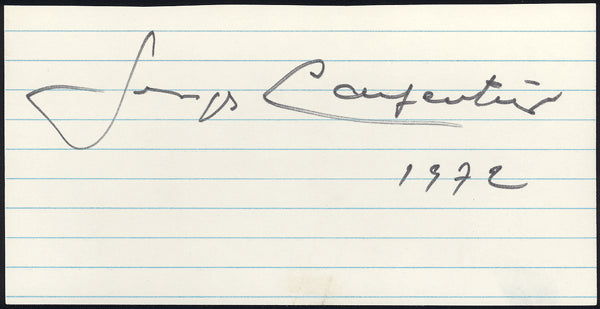 Georges Carpentier
1972